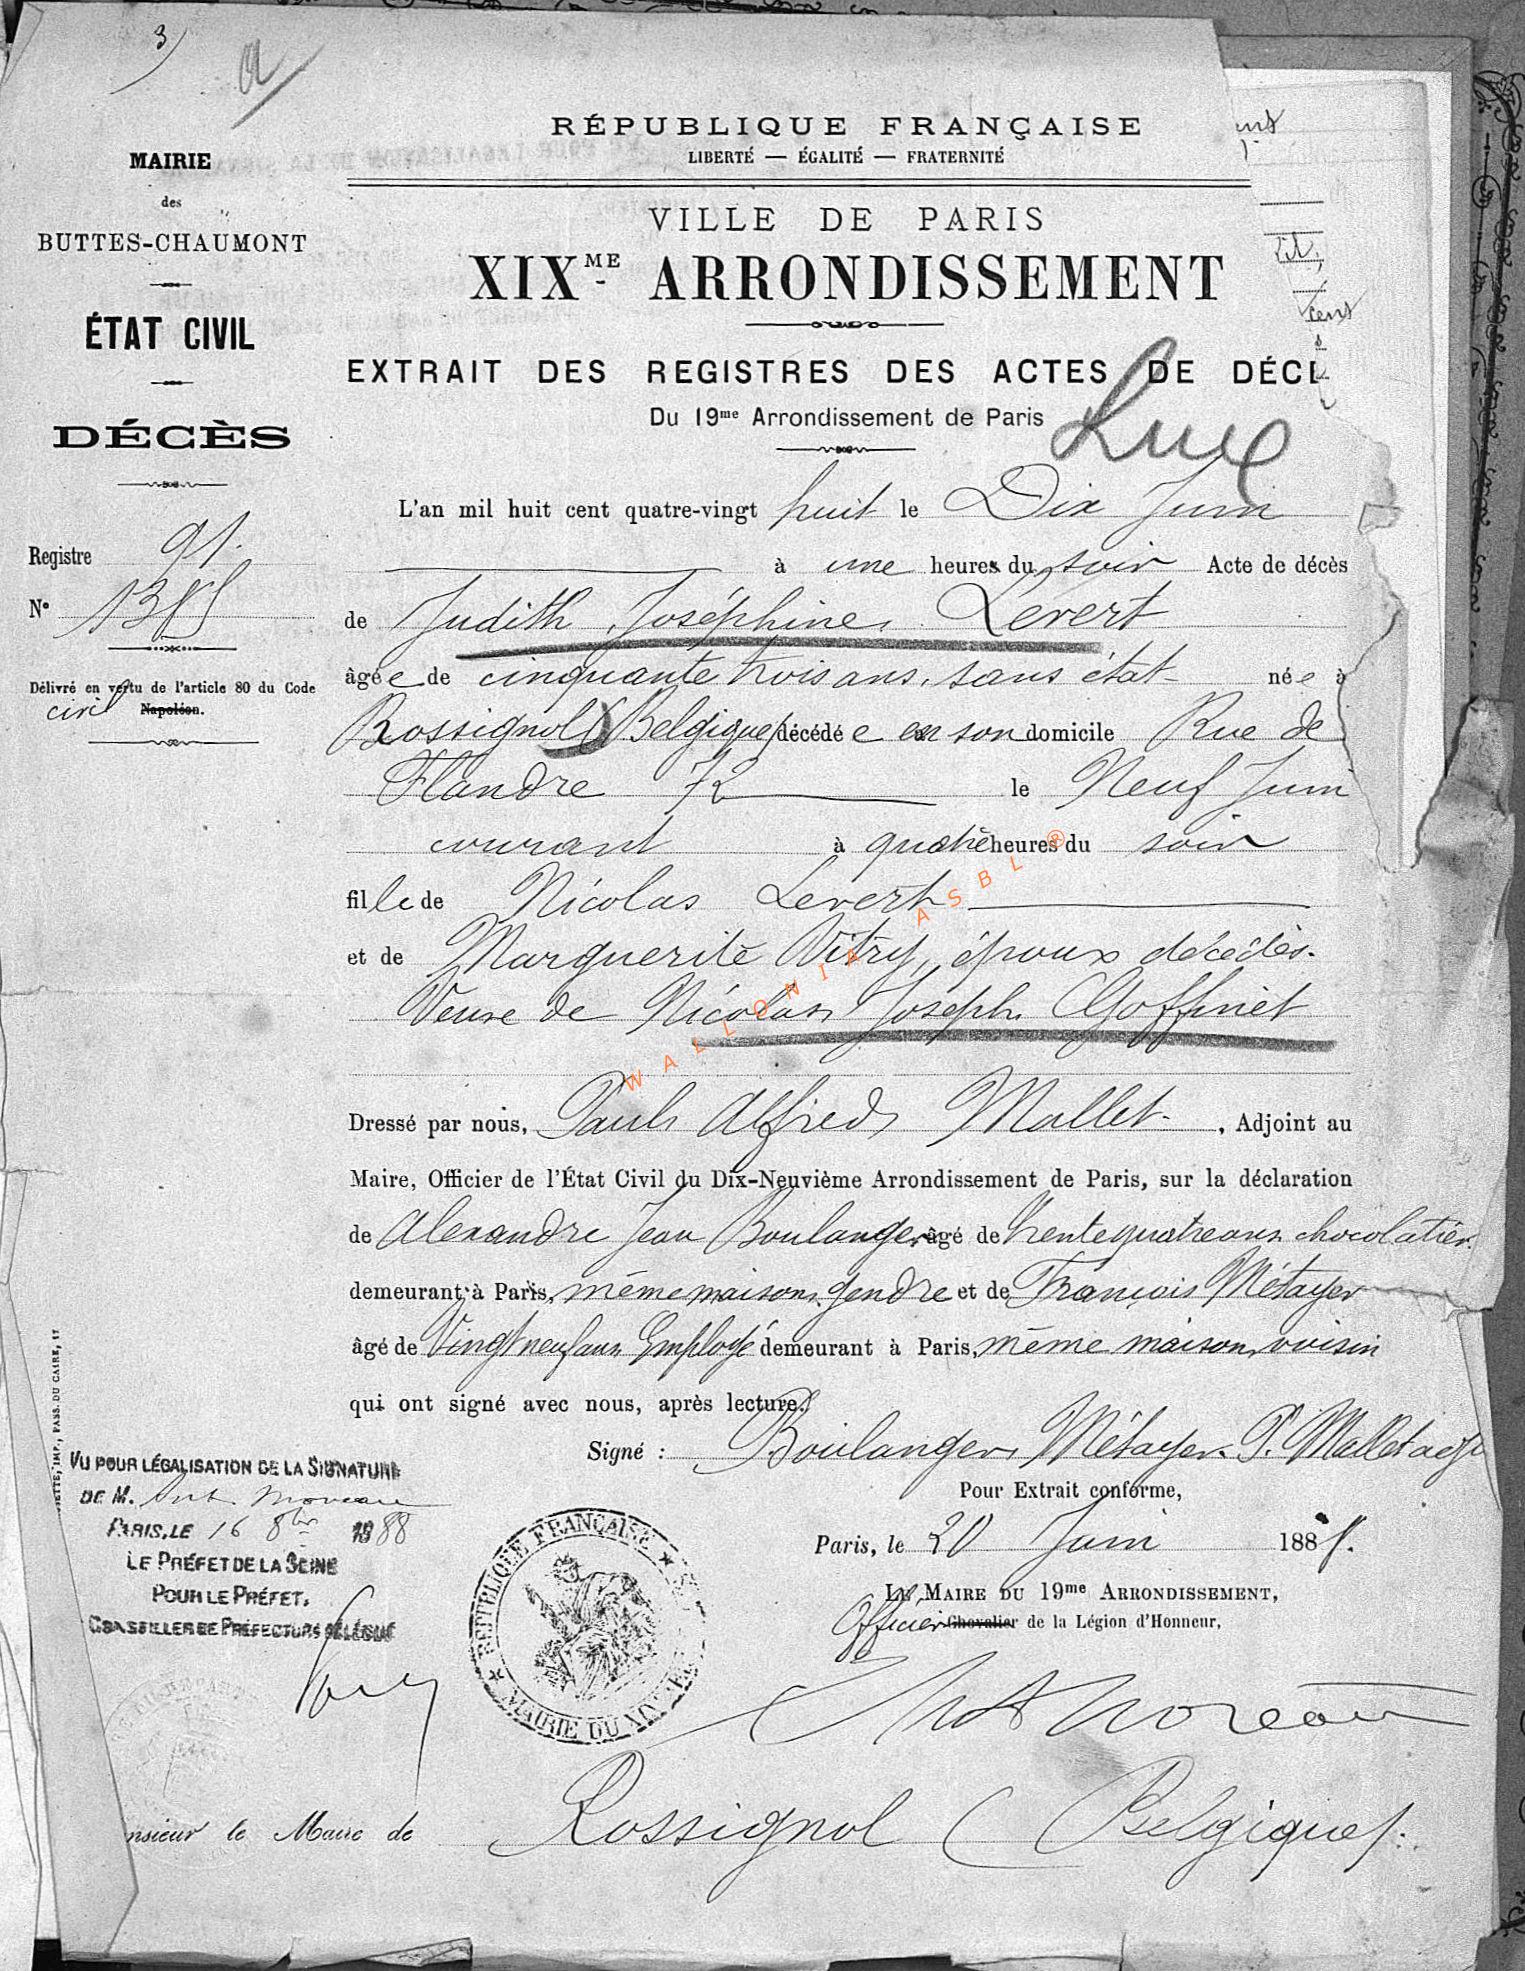 3)
a
RÉPUBLIQUE FRANÇAISE
LIBERTÉ — ÉGALITÉ — FRATERNITÉ
MAIRIE
des
BUTTES-CHAUMONT
ÉTAT CIVIL
DÉCÈS
Registre 91.
N° 1385
Délivré en vertu de l'article 80 du Code
civil Napoléon.
VILLE DE PARIS
XIXME ARRONDISSEMENT
EXTRAIT DES REGISTRES DES ACTES DE DÉCÈ
Du 19me Arrondissement de Paris
Lux
L'an mil huit cent quatre-vingt huit le Dix Juin
à une heures du soir Acte de décès
de Judith Joséphine Levert
âgée de cinquante trois ans, sans état née à
Rossignol (Belgique) décédée en son domicile Rue de
Flandre 72 le Neuf Juin
courant à quatre heures du soir
fille de Nicolas Levert
et de Marguerite Vitry, époux décédés.
Veuve de Nicolas Joseph Goffinet
Dressé par nous, Paul Alfred Mallet, Adjoint au
Maire, Officier de l'État Civil du Dix-Neuvième Arrondissement de Paris, sur la déclaration
de Alexandre Jean Boulanger âgé de trente quatre ans chocolatier
demeurant à Paris, même maison, gendre et de François Métayer
âgé de Vingt neuf ans Employé demeurant à Paris, même maison, voisin
qui ont signé avec nous, après lecture.
Signé : Boulanger, Métayer. P. Mallet adjt
Pour Extrait conforme,
Paris, le 20 Juin 1888.
LE MAIRE DU 19me ARRONDISSEMENT,
Officier Chevalier de la Légion d'Honneur,
Ant Moreau
VU POUR LÉGALISATION DE LA SIGNATURE
DE M. Ant. Moreau
PARIS, LE 16 8bre 1888
LE PRÉFET DE LA SEINE
POUR LE PRÉFET,
CONSEILLER DE PRÉFECTURE DÉLÉGUÉ
RÉPUBLIQUE FRANÇAISE
MAIRIE DU XIXe
nsieur le Maire de Rossignol (Belgique).
IMP., PASS. DU CAIRE, 17
WALLONIA ASBL ®